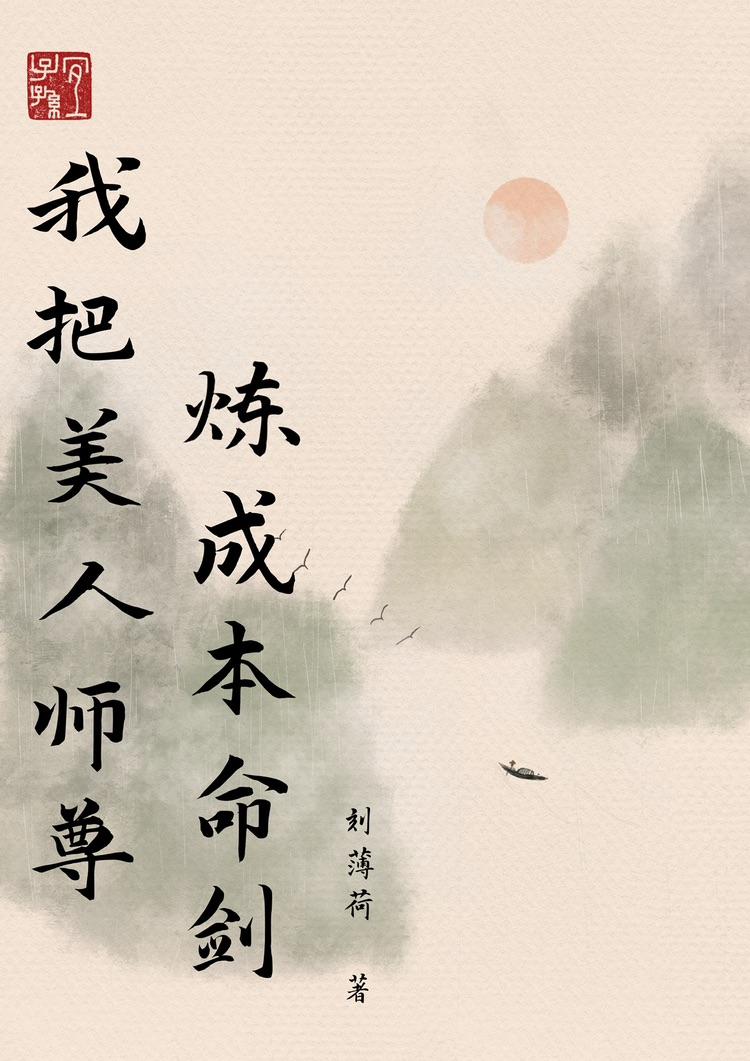 宜子孫
我把美人师尊
炼成本命剑
刻薄荷 著